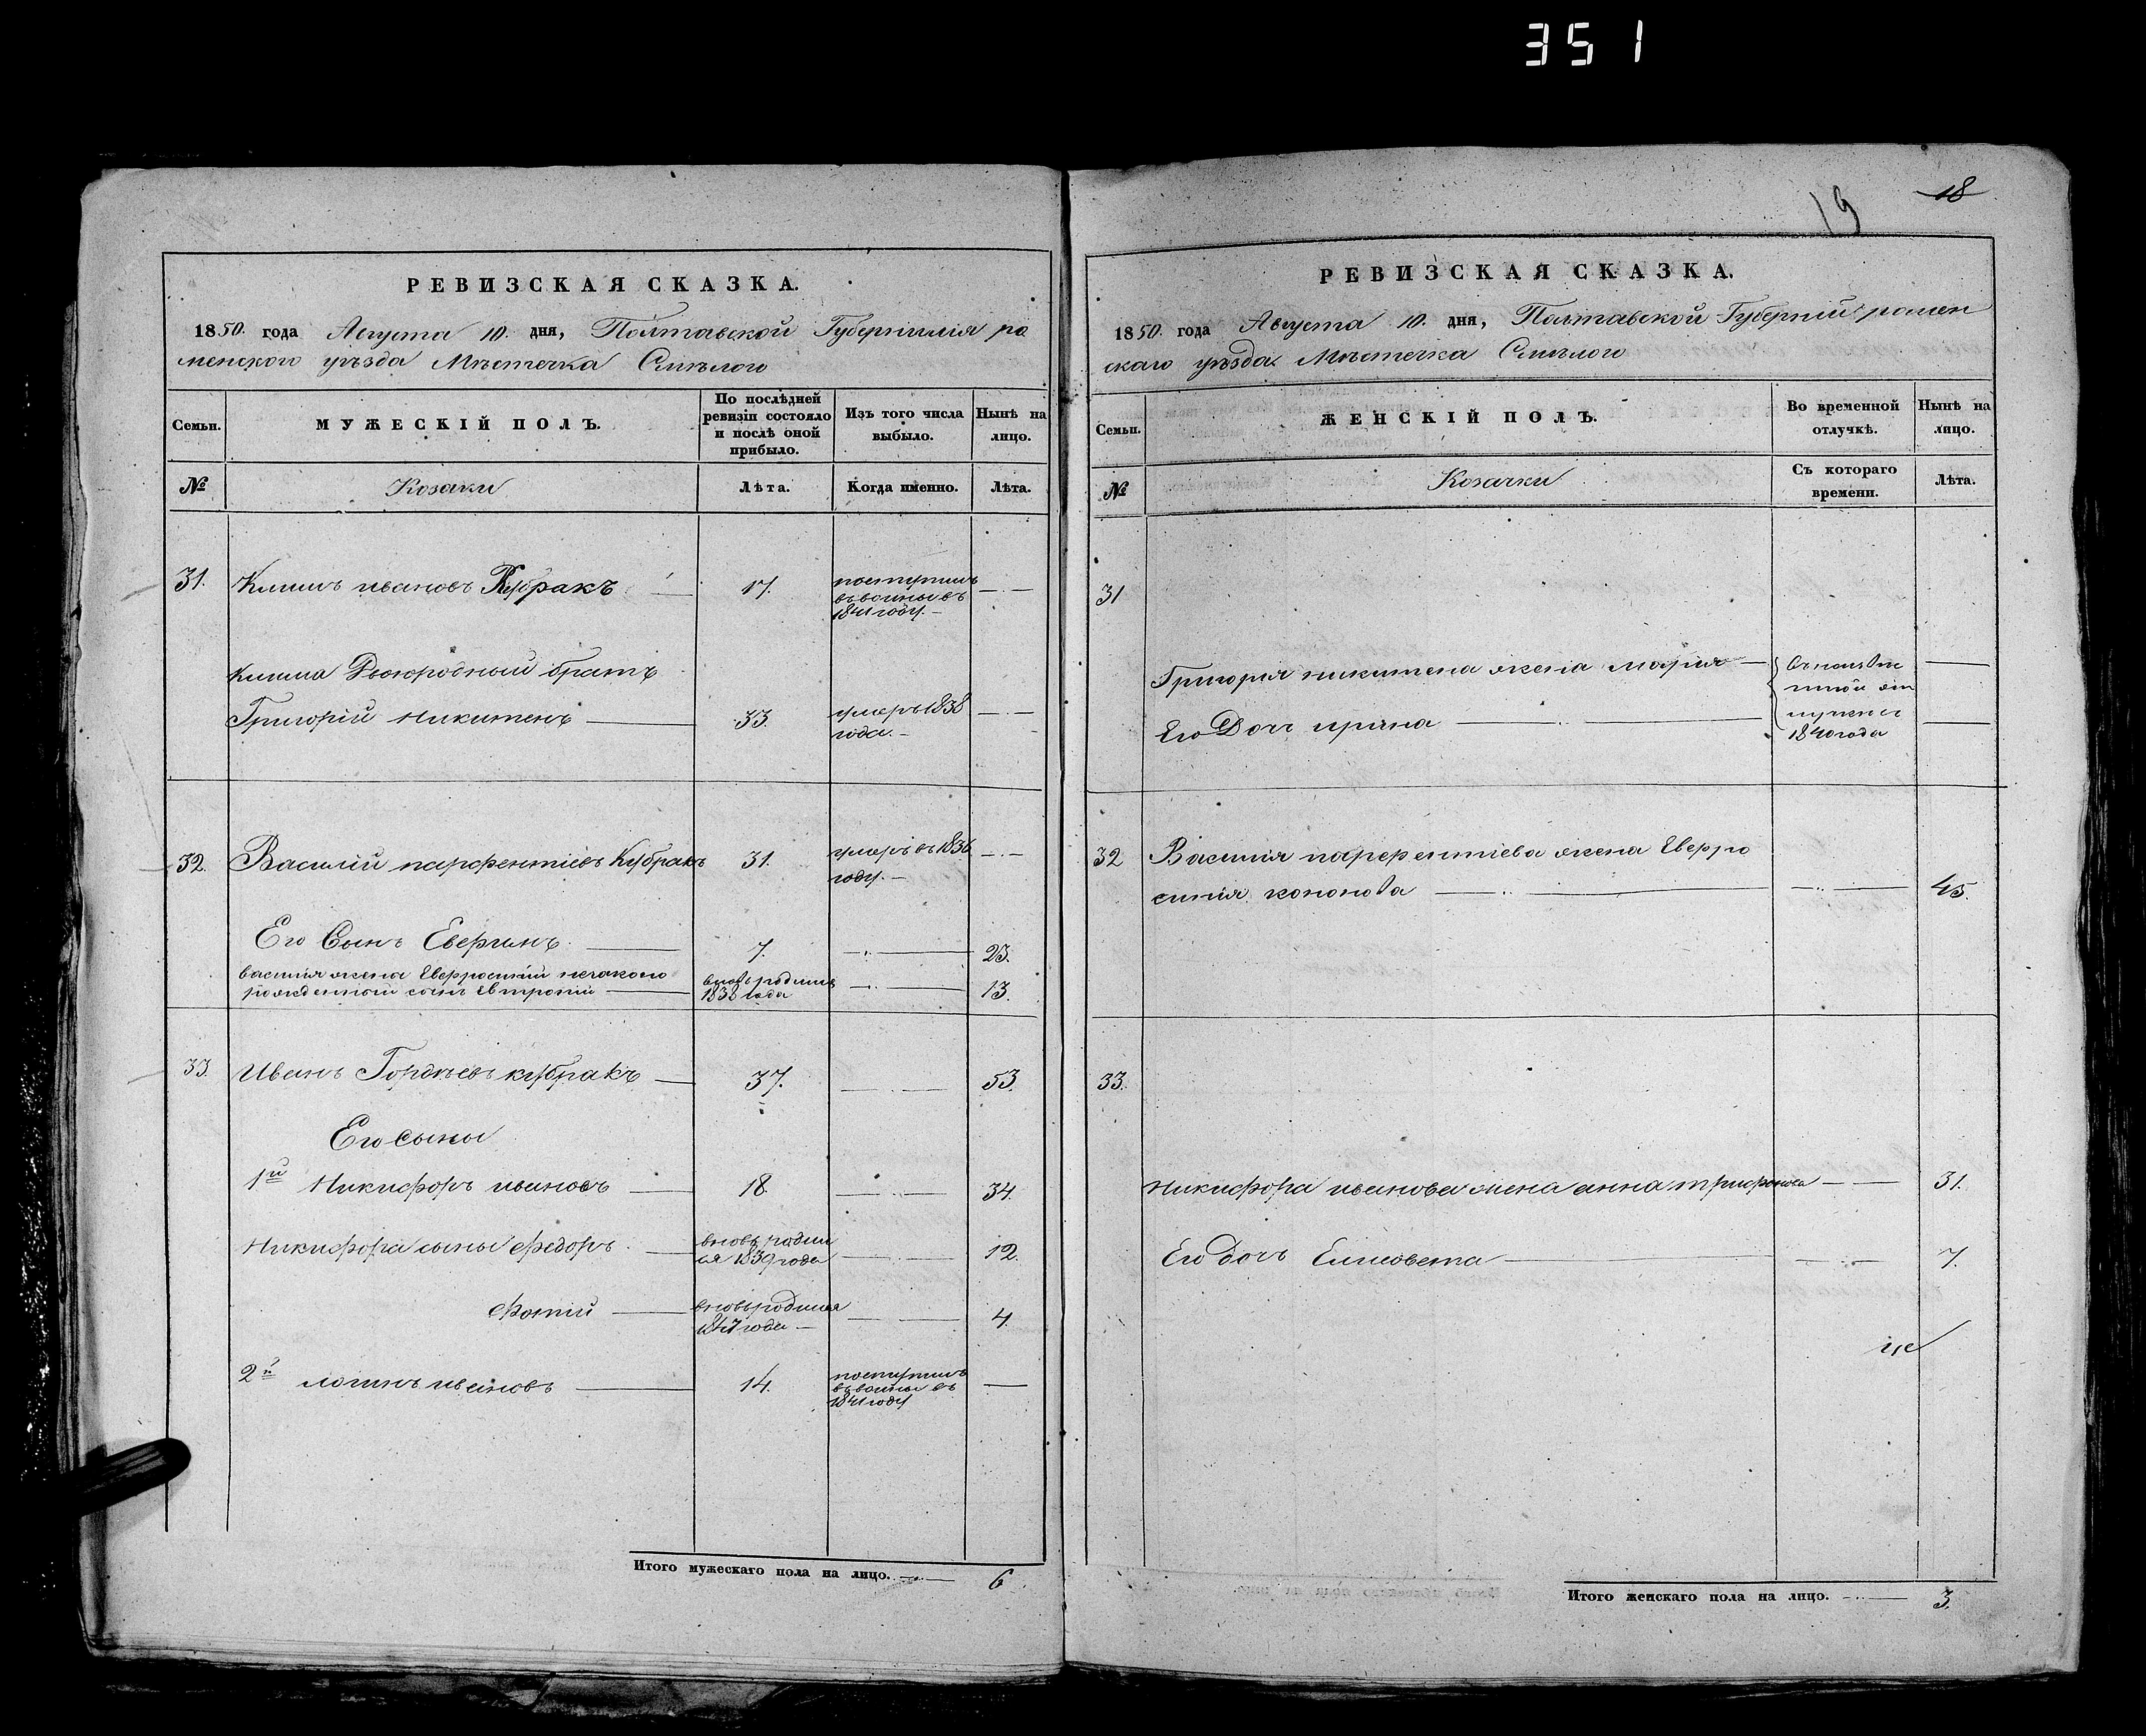 351
19 18
РЕВИЗСКАЯ СКАЗКА.
1850. года Августа 10. дня, Полтавской Губерніи ро
менского уѣзда Мѣстечка Смѣлого
Семьи.
МУЖЕСКІЙ ПОЛЪ.
По послѣдней ревизіи состояло и послѣ оной прибыло.
Изъ того числа выбыло.
Нынѣ на лицо.
№
Козаки
Лѣта.
Когда именно.
Лѣта.
31. Климъ ивановъ Кубракъ 17. поступилъ
въ воины въ
1841 году.
Клима Двоюродный братъ
Григорій Никитенъ 33. умеръ 1838
года.
32. Василій парфентіевъ Кубракъ 31. умеръ въ 1836
году.
Его Сынъ Еверинъ 7. 23.
василія жены Евфросиніи незаконо
рожденный сынъ Евтропій вновь родился
1838 года 13.
33. Иванъ Гордѣевъ кубракъ 37. 53.
Его сыны
1й Никифоръ ивановъ 18. 34.
Никифора сыны Федоръ вновь родил
ся 1839 года 12.
Фотій вновь родился
1847 года 4.
2й логинъ ивановъ 14. поступилъ
въ воины въ
1841 году
Итого мужескаго пола на лицо. 6
РЕВИЗСКАЯ СКАЗКА.
1850. года Августа 10. дня, Полтавской Губерніи ромен
скаго уѣзда Мѣстечка Смѣлого
Семьи.
ЖЕНСКІЙ ПОЛЪ.
Во временной отлучкѣ.
Нынѣ на лицо.
№
Козачки
Съ котораго времени.
Лѣта.
31
Григорія никитена жена марія
Его Дочь ирина
1840 года
32 Василія парфентіева жена Евфро
синія кононова 45.
33.
Никифора иванова жена анна трифонова 31.
Его дочь Елисовета 7.
Итого женскаго пола на лицо. 3.